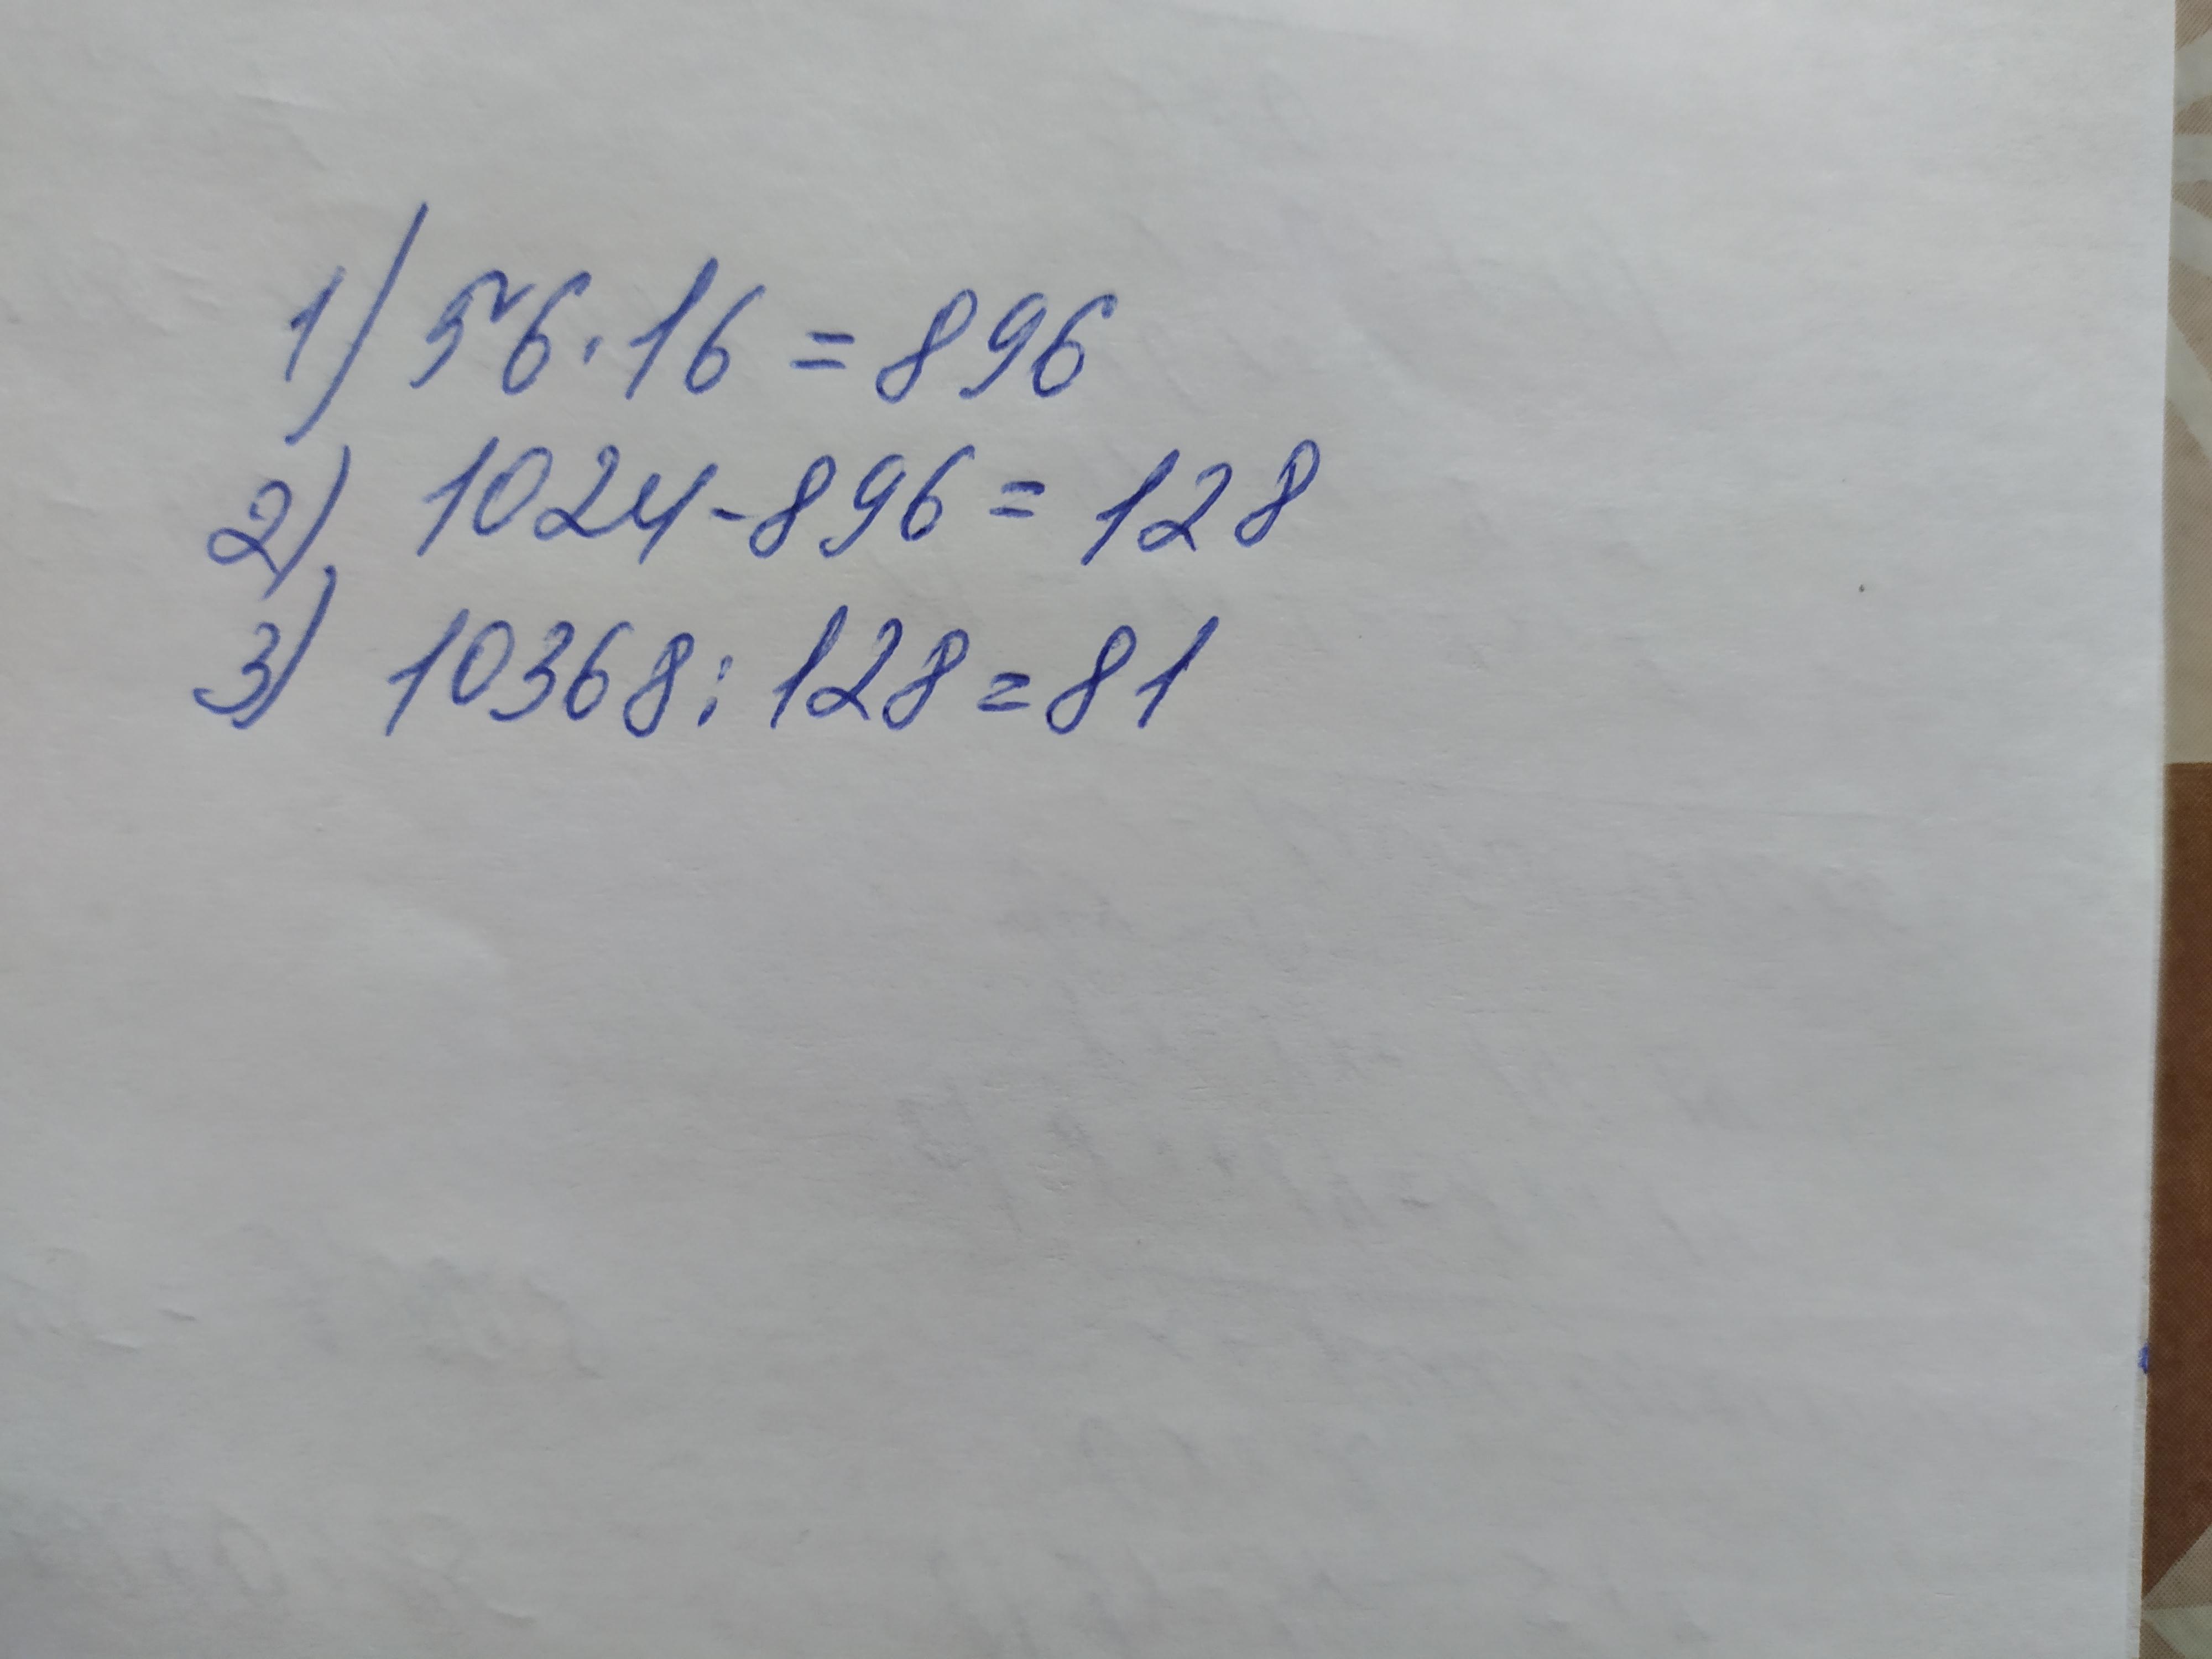 1) 56·16 = 896
2) 1024-896 = 128
3) 10368:128=81